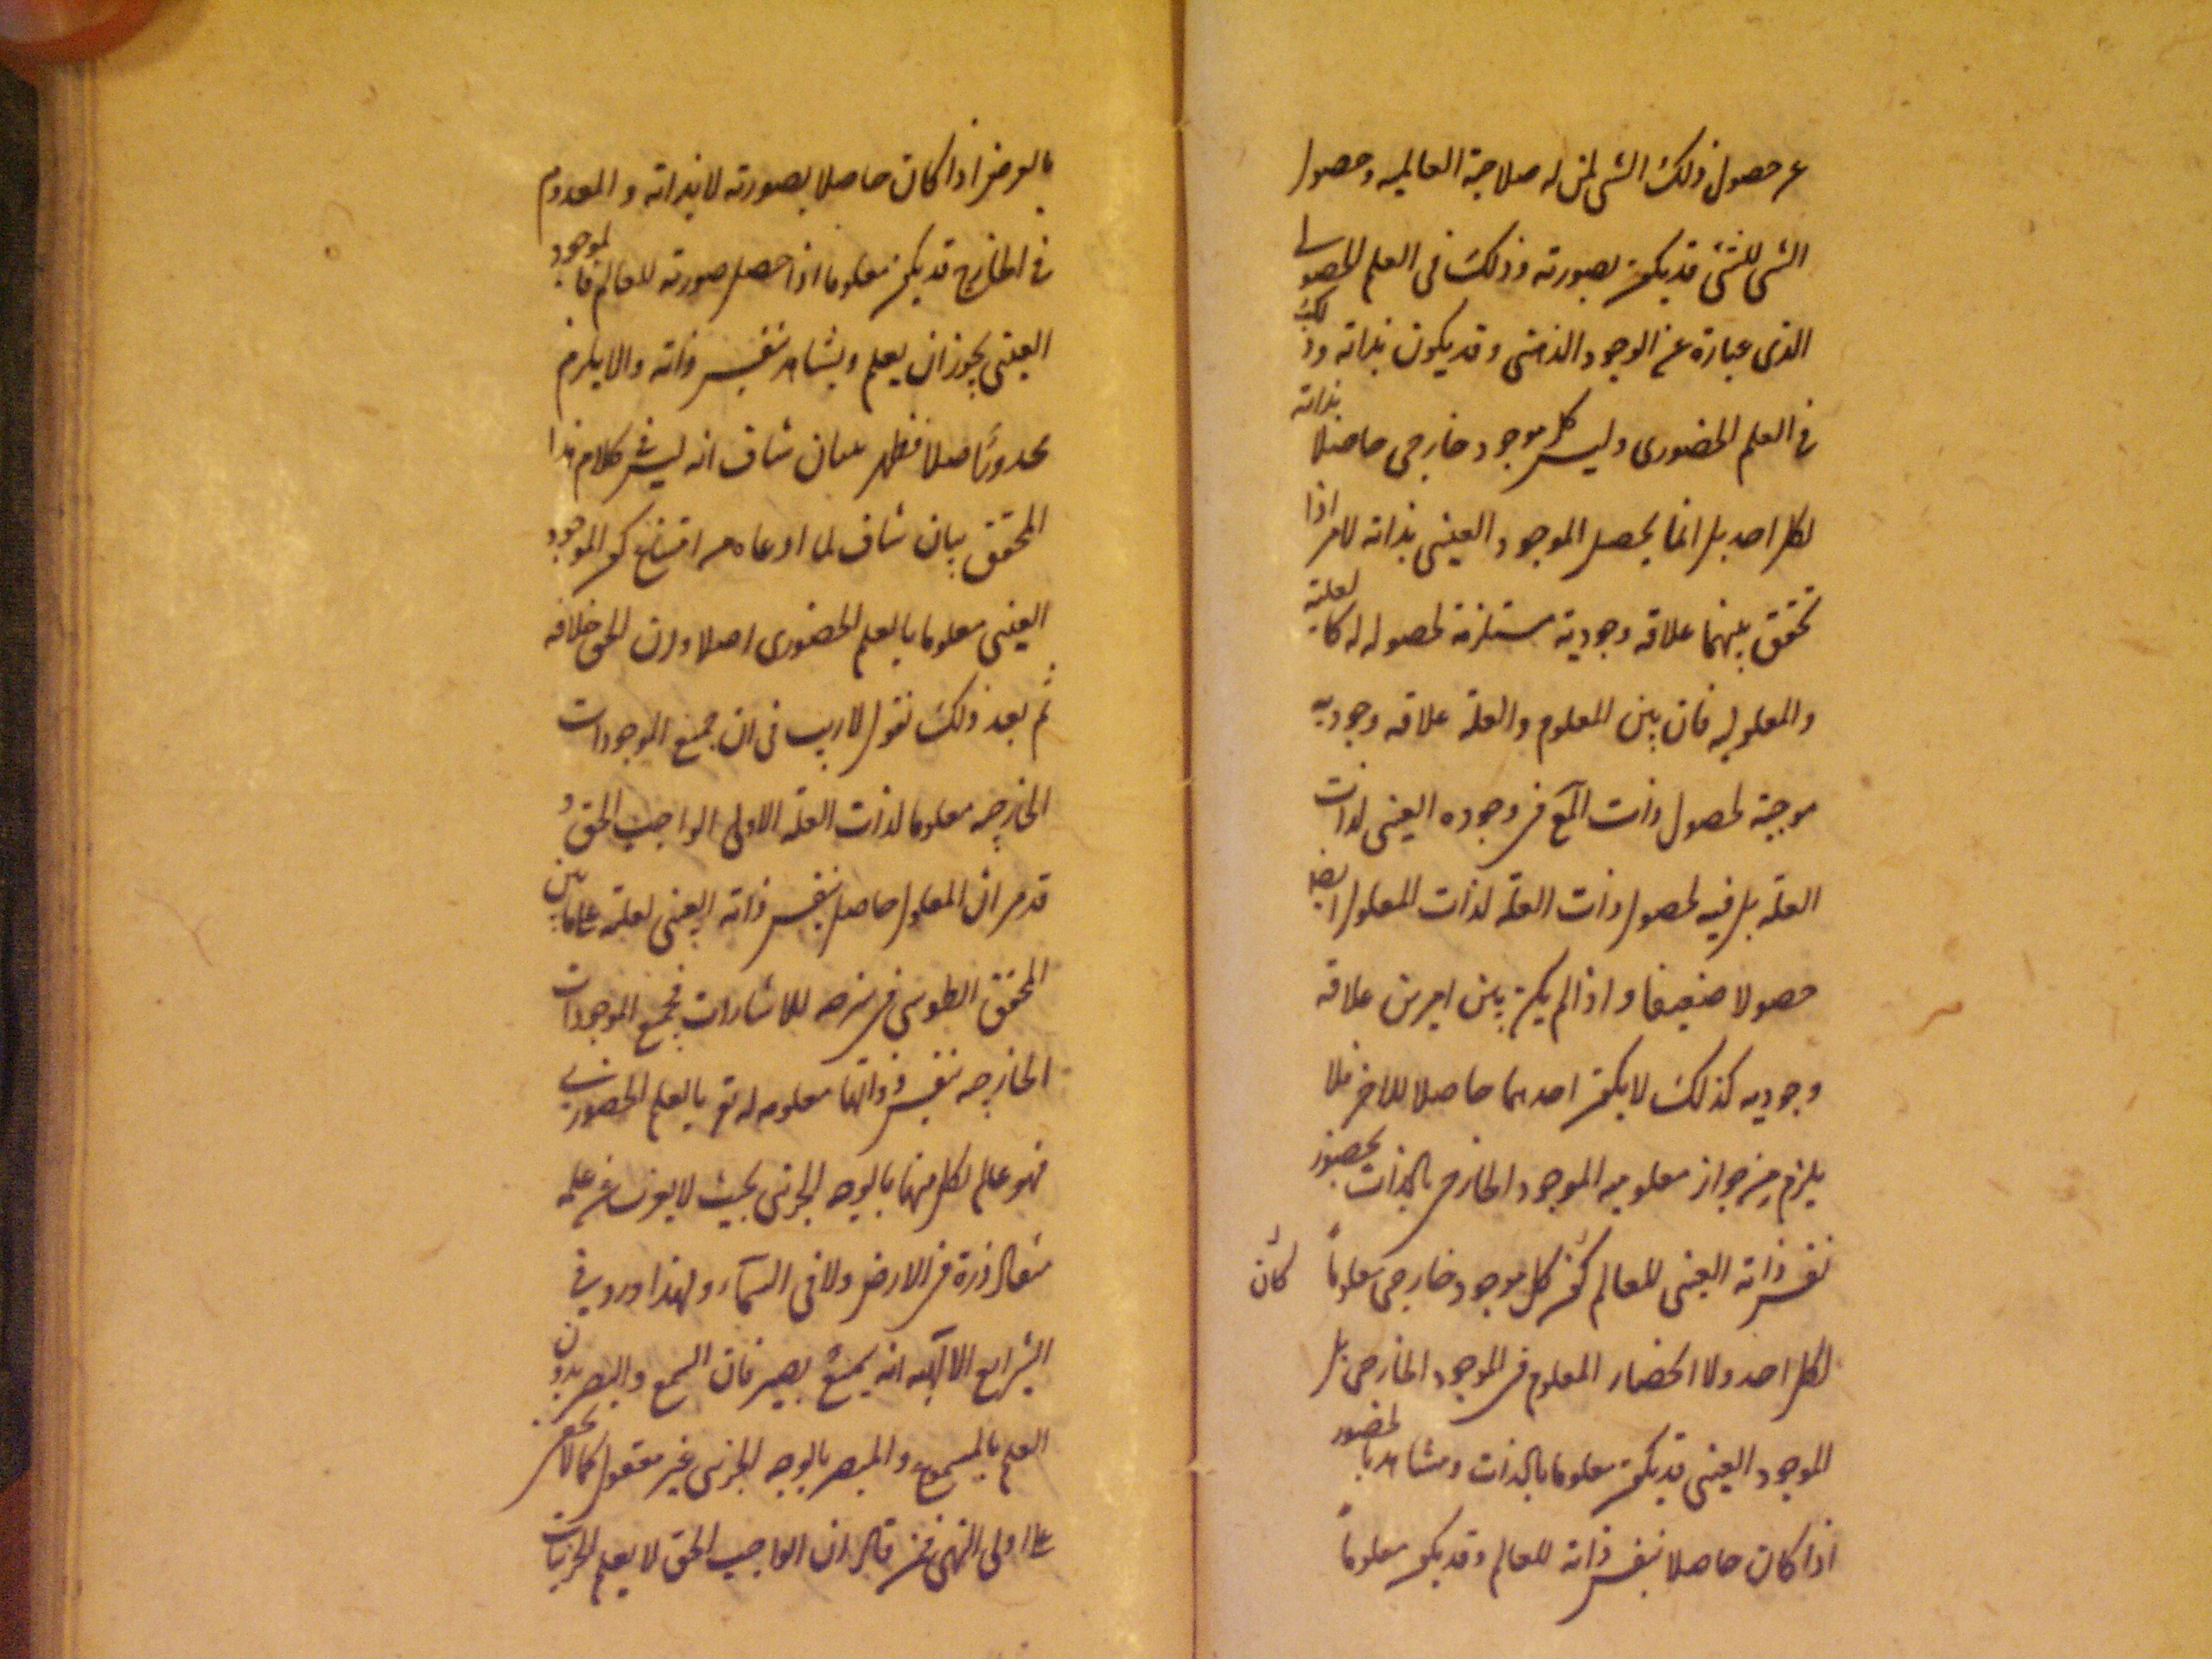 عن حصول ذلك الشی لمن له صلاحیة العالمیه وحصول
الشی للشئ قدیکون بصورته وذلک فی العلم الحصولی
الذی عبارة عن الوجود الذهنی وقدیکون بذاته وذلک
فی العلم الحضوری ولیس کل موجود خارجی حاصلا بذاته
لکل احد بل انما یحصل الموجود العینی بذاته لامر اذا
تحقق بینهما علاقه وجودیة مستلزمة لحصوله له کالعلیة
والمعلولیه فان بین المعلوم والعلة علاقه وجودیه
موجبة لحصول ذات المع فی وجوده العینی لذات
العلة بل فیه لحصول ذات العلة لذات المعلول ایضا
حصولا ضعیفا واذا لم یکن بین امرین علاقة
وجودیه کذلک لا یکون احدهما حاصلا للاخر فلا
یلزم من جواز معلومیه الموجود الخارجی بالذات بحضور
نفس ذاته العینی للعالم کون کل موجود خارجی معلوماً کان
لکل احد ولا انحصار المعلوم فی الموجود الخارجی بل
الموجود العینی قدیکون معلوما بالذات ومشاهدا بالحضور
اذا کان حاصلا بنفس ذاته للعالم وقدیکون معلوماً
بالعرض اذا کان حاصلا بصورته لا بذاته والمعدوم
فی الخارج قدیکون معلوما اذا حصل صورته للعالم فالموجود
العینی یجوز ان یعلم ویشاهد بنفس ذاته والا یلزم
محذور اصلا فظهر ببیان شاف انه لیس فی کلام هذا
المحقق بیان شاف لما ادعاه من امتناع کون الموجود
العینی معلوما بالعلم الحضوری اصلا وان الحق خلافه
ثم بعد ذلک نقول لاریب فی ان جمیع الموجودات
الخارجیه معلوما لذات العلة الاولی الواجب الحق و
قد مر ان المعلول حاصل بنفس ذاته العینی لعلته علی ما بین
المحقق الطوسی فی شرحه للاشارات فجمیع الموجودات
الخارجیه بنفس ذواتها معلومه له تع بالعلم الحضوری
فهو عالم لکل منها بالوجه الجزئی بحیث لا یعزب عن علمه
مثقال ذرة فی الارض ولا فی السمآء ولهذا ورد فی
الشرایع الالهیه انه سمیع بصیر فان السمع والبصر بدون
العلم بالمسموع والمبصر بالوجه الجزئی غیر معقول کما لا یخفی
علی اولی النهی فمن قال ان الواجب الحق لا یعلم الجزئیات